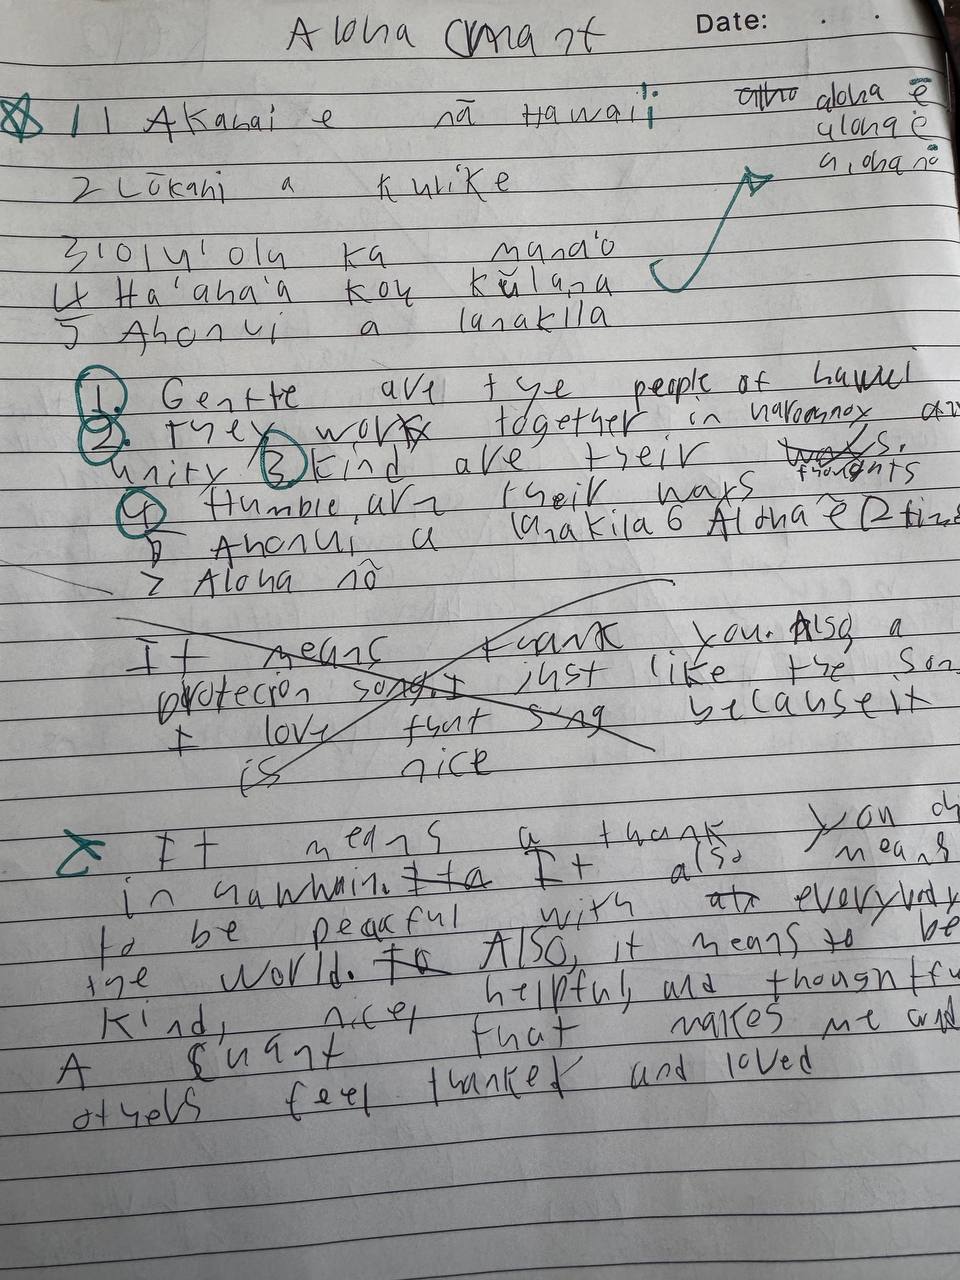 Aloha Chant
Date: . .
1 1 Akahai e nā Hawai'i aloha ē
aloha ē
aloha nō
2 Lōkahi a kulike
3 'Olu'olu ka mana'o
4 Ha'aha'a kou kūlana
5 Ahonui a lanakila
1. Gentte are tye people of hawii
2. they work together in
unity 3 kind are their ways.
thoughts
4 Humble, are their ways
5 Ahonui a lanakila 6 Aloha ē (2 tim
7 Aloha nō
It means thank you. Also a
protecion song. I just like the son
I love that song because it
is nice
2 It means a thank you
in hawhain. It also means
to be peacful with everybody
the world. Also, it means to be
kind, nice, helpful, and thoughtfu
A chant that makes me and
others feel thanked and loved